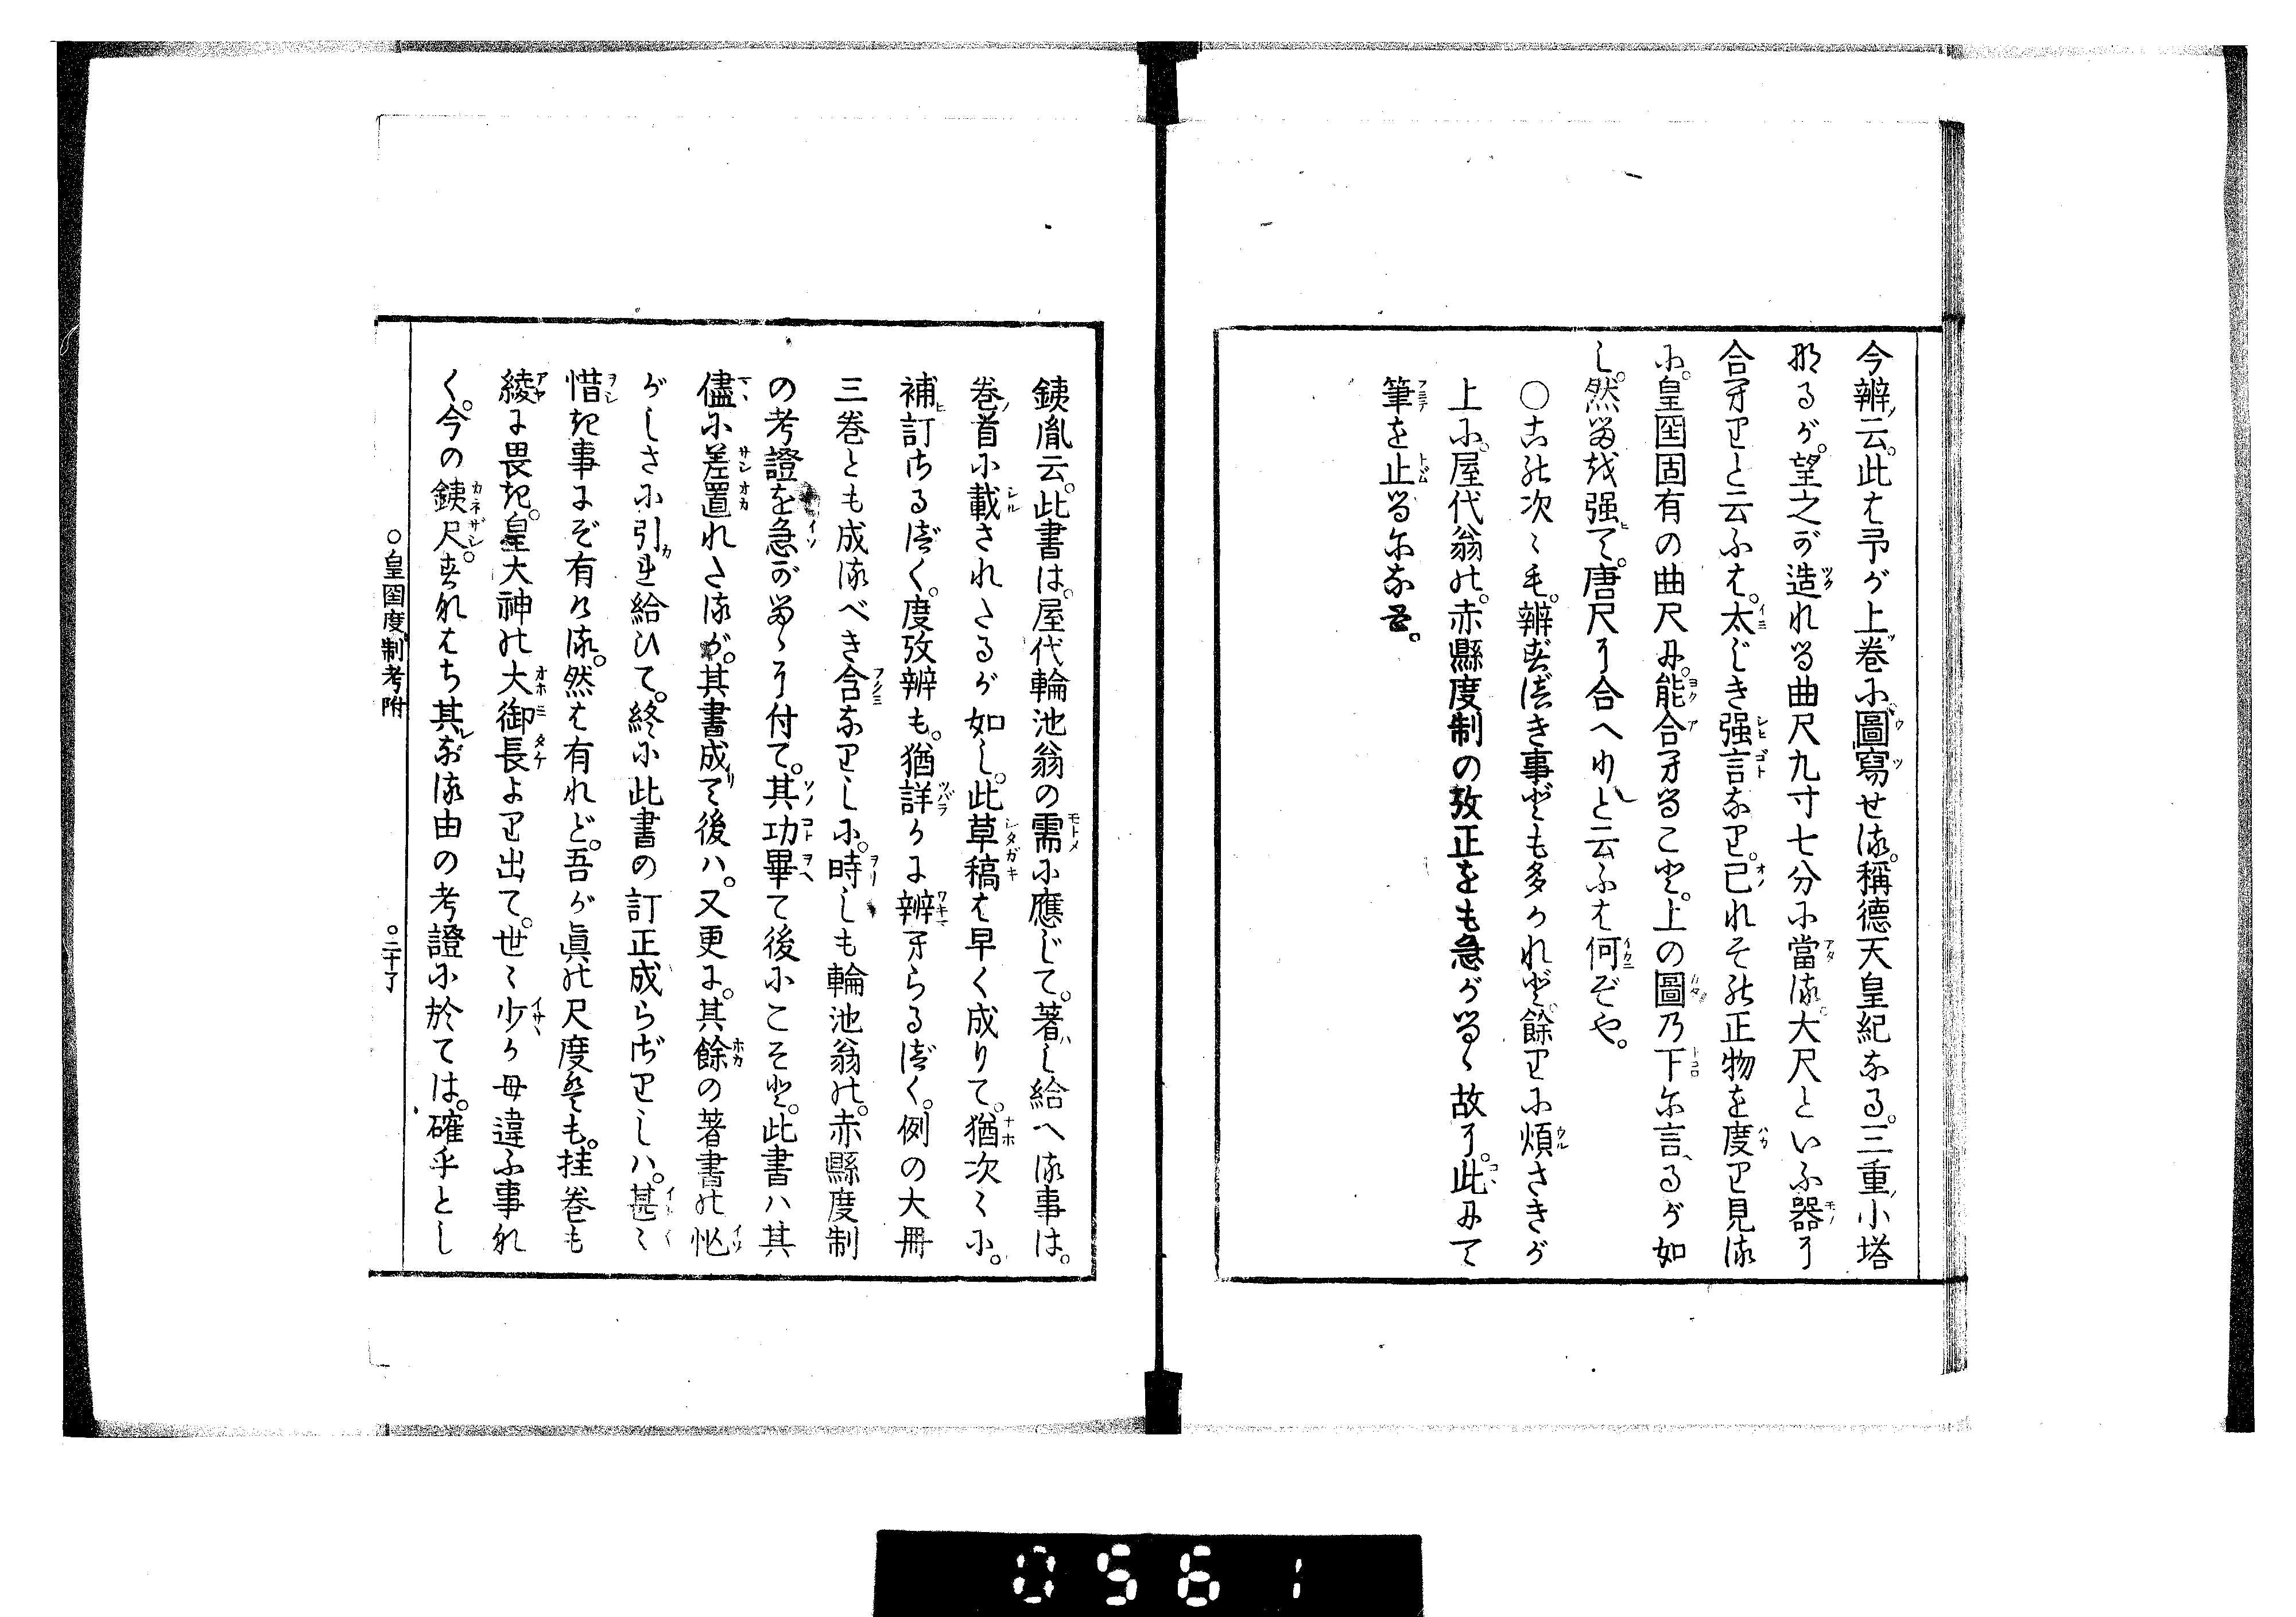 今辨云。此は予が上巻に圖寫せる。稱德天皇紀なる。三重小塔
なるが。望之が造れる曲尺九寸七分に當る。大尺といふ器に
合へりと云ふは。太じき强言なり。己れその正物を度り見る
に。皇国固有の曲尺に。能合へること。上の圖の下に言るが如
し。然るを强て。唐尺に合へりと云ふは何ぞや。
〇この次々も。辨ずべき事ども多かれど。餘りに煩さきが
上に。屋代翁の。赤縣度制の攷正をも急がるゝ故に。此にて
筆を止るになむ。
銕胤云。此書は。屋代輪池翁の需に應じて。著し給へる事は。
巻首に載されたるが如し。此草稿は早く成りて。猶次々に。
補訂さるべく。度攷辨も。猶詳かに辨へらるべく。例の大冊
三巻とも成るべき含なりしに。時しも輪池翁の。赤縣度制
の考證を急がるゝに付て。其功畢て後にこそと。此書ハ其
儘に差置れたるが。其書成て後ハ。又更に。其餘の著書の忙
がしさに引れ給ひて。終に此書の訂正成らざりしハ。甚く
惜き事にぞ有ける。然は有れど。吾が眞の尺度はも。挂巻も
綾に畏き。皇大神の大御長より出て。世々少かも違ふ事な
く。今の銕尺。すなはち其なる由の考證に於ては。確乎とし
〇皇国度制考附
〇二十了
0561